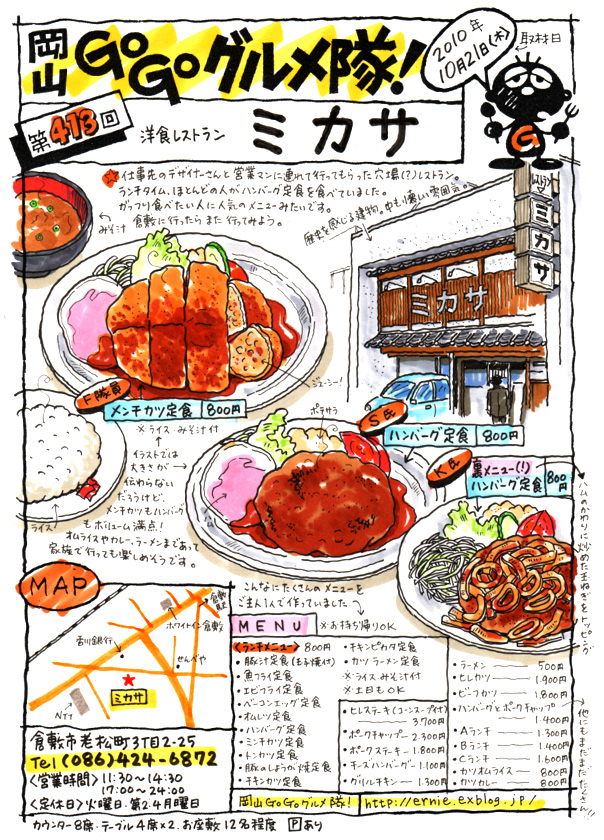 岡山GoGoグルメ隊!
2010年
10月21日(木)
取材日
第413回
洋食レストラン
ミカサ
G
☆仕事先のデザイナーさんと営業マンに連れて行ってもらった穴場(?)レストラン。
ランチタイム、ほとんどの人がハンバーグ定食を食べていました。
ガッツリ食べたい人に人気のメニューみたいです。
倉敷に行ったらまた行ってみよう。
みそ汁
歴史を感じる建物。中も懐しい雰囲気。
レストラン
ミカサ
ミカサ
ジューシー!
F隊員
メンチカツ定食 800円
※ライス みそ汁付
ポテサラ
S氏
ハンバーグ定食 800円
K氏
裏メニュー(!)
ハンバーグ定食 800円
ハムのかわりに炒めた玉ねぎをトッピング
イラストでは
大きさが
伝わらない
だろうけど、
メンチカツもハンバーグ
もボリューム満点!
オムライスやカレー、ラーメンまであって
家族で行っても楽しめそうです。
ライス
MAP
倉敷駅
ホワイトイン倉敷
香川銀行
せんべや
ミカサ
NTT
こんなにたくさんのメニューを
ご主人1人で作っていました
MENU
※お持ち帰りOK
<ランチメニュー> 800円
・豚汁定食(玉子焼付)
・魚フライ定食
・エビフライ定食
・ベーコンエッグ定食
・オムレツ定食
・ハンバーグ定食
・ミンチカツ定食
・トンカツ定食
・豚のしょうが焼定食
・チキンカツ定食
・チキンピカタ定食
・カツラーメン定食
※ライス みそ汁付
※土日もOK
・ヒレステーキ(コーンスープ付)
3,700円
・ポークチャップ 2,300円
・ポークステーキ 1,800円
・チーズハンバーグ 1,100円
・グリルチキン 1,300円
・ラーメン 500円
・ヒレカツ 1,900円
・ビーフカツ 1,800円
・ハンバーグとポークチャップ
1,400円
・Aランチ 1,300円
・Bランチ 1,400円
・Cランチ 1,600円
・カツオムライス 800円
・カツカレー 800円
他にもまだまだたくさん!!
倉敷市老松町3丁目2-25
Tel (086)424-6872
<営業時間> 11:30〜14:30
17:00〜24:00
<定休日> 火曜日、第2.4月曜日
カウンター8席・テーブル4席×2、お座敷12名程度 Pあり
岡山GoGoグルメ隊! http://ernie.exblog.jp/